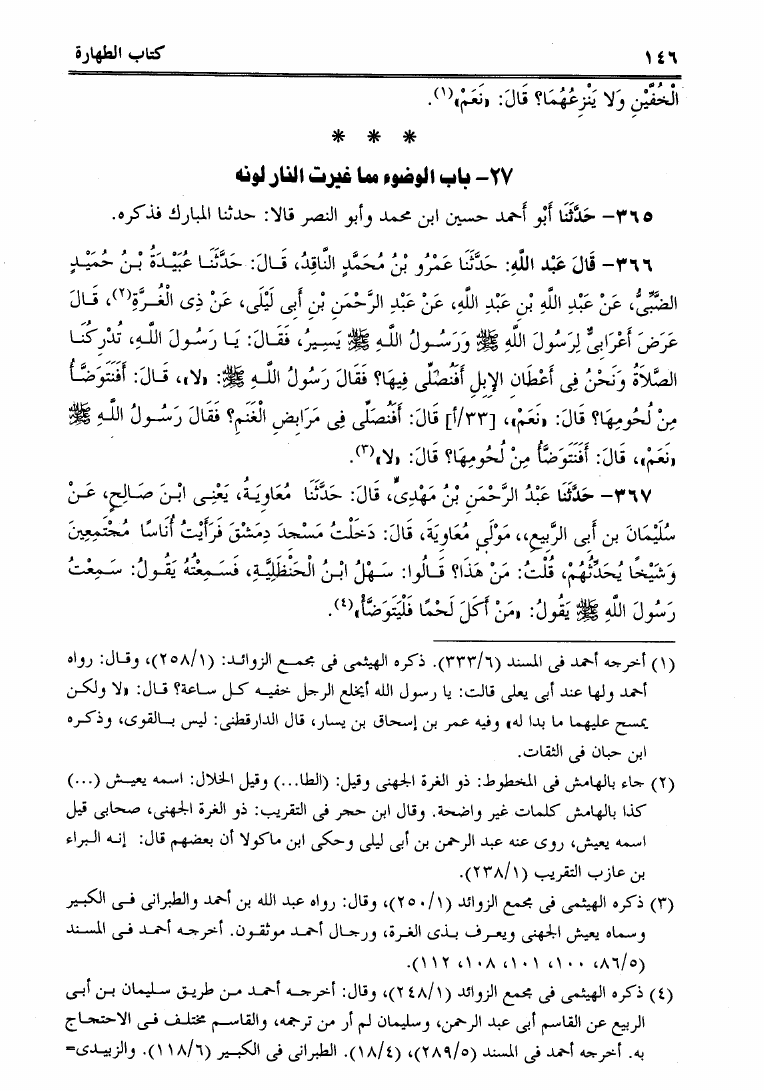 ١٤٦ كتاب الطهارة
الْخُفَّيْنِ وَلا يَنْزِعُهُمَا؟ قَالَ: «نَعَمْ»(١).
* * *
٢٧- باب الوضوء مما غيرت النار لونه
٣٦٥- حَدَّثَنَا أَبُو أَحمد حسين ابن محمد وأبو النصر قالا: حدثنا المبارك فذكره.
٣٦٦- قَالَ عَبْد اللهِ: حَدَّثَنَا عَمْرُو بْنُ مُحَمَّدٍ النَّاقِدُ، قَـالَ: حَدَّثَنَـا عُبَيْدَةُ بْـنُ حُمَيْـدٍ
الضَّبِّىُّ، عَنْ عَبْدِ اللهِ بْنِ عَبْدِ اللهِ، عَنْ عَبْدِ الرَّحْمَنِ بْنِ أَبِى لَيْلَى، عَنْ ذِى الْغُـرَّةِ(٢)، قَـالَ
عَرَضَ أَعْرَابِىٌّ لِرَسُولَ اللهِ ﷺ وَرَسُـولُ اللَّـهِ ﷺ يَسِيرُ، فَقَـالَ: يَـا رَسُـولَ اللَّـهِ، تُدْرِكُنَـا
الصَّلاَةُ وَنَحْنُ فِى أَعْطَانِ الإِبِلِ أَفَنُصَلِّى فِيهَا؟ فَقَالَ رَسُولُ اللَّـهِ ﷺ: «لا»، قَـالَ: أَفَنَتَوَضَّـأُ
مِنْ لُحُومِهَا؟ قَالَ: «نَعَمْ»، [٣٣/أ] قَالَ: أَفَنُصَلِّى فِى مَرَابِضِ الْغَنَمِ؟ فَقَالَ رَسُـولُ اللَّـهِ ﷺ
«نَعَمْ»، قَالَ: أَفَنَتَوَضَّأُ مِنْ لُحُومِهَا؟ قَالَ: «لا»(٣).
٣٦٧- حَدَّثَنَا عَبْدُ الرَّحْمَنِ بْنُ مَهْدِىٍّ، قَالَ: حَدَّثَنَا مُعَاوِيَةُ، يَعْنِى ابْنَ صَـالِحٍ، عَـنْ
سُلَيْمَانَ بن أَبِى الرَّبِيعِ،، مَوْلَى مُعَاوِيَةَ، قَالَ: دَخَلْتُ مَسْجدَ دِمَشْقَ فَرَأَيْتُ أُنَاسًا مُجْتَمِعِينَ
وَشَيْخًا يُحَدِّثُهُمْ، قُلْتُ: مَنْ هَذَا؟ قَـالُوا: سَـهْلُ ابْـنُ الْحَنْظَلِيَّـةِ، فَسَـمِعْتُهُ يَقُـولُ: سَـمِعْتُ
رَسُولَ اللهِ ﷺ يَقُولُ: «مَنْ أَكَلَ لَحْمًا فَلْيَتَوَضَّأْ»(٤).
(١) أخرجه أحمد فى المسند (٣٣٣/٦). ذكره الهيثمى فى مجمـع الزوائـد: (٢٥٨/١)، وقـال: رواه
أحمد ولها عند أبى يعلى قالت: يا رسول الله أيخلع الرجل خفيـه كـل سـاعة؟ قـال: «لا ولكـن
يمسح عليهما ما بدا له» وفيه عمر بن إسحاق بن يسار، قال الدارقطنى: ليس بـالقوى، وذكـره
ابن حبان فى الثقات.
(٢) جاء بالهامش فى المخطوط: ذو الغرة الجهنى وقيل: (الطا...) وقيل الخلال: اسمه يعيـش (...)
كذا بالهامش كلمات غير واضحة. وقال ابن حجر فى التقريب: ذو الغرة الجهنى، صحابى قيل
اسمه يعيش، روى عنه عبد الرحمن بن أبى ليلى وحكى ابن ماكولا أن بعضهم قال: إنـه الـبراء
بن عازب التقريب (٢٣٨/١).
(٣) ذكره الهيثمى فى مجمع الزوائد (٢٥٠/١)، وقال: رواه عبد الله بن أحمد والطبرانى فـى الكبـير
وسماه يعيش الجهنى ويعـرف بـذى الغـرة، ورجـال أحمـد موثقـون. أخرجـه أحمـد فـى المسـند
(٨٦/٥، ١٠٠، ١٠١، ١٠٨، ١١٢).
(٤) ذكره الهيثمى فى مجمع الزوائد (٢٤٨/١)، وقال: أخرجـه أحمـد مـن طريـق سـليمان بـن أبـى
الربيع عن القاسم أبى عبد الرحمن، وسليمان لم أر من ترجمه، والقاسـم مختلـف فـى الاحتجـاج
به. أخرجه أحمد فى المسند (٢٨٩/٥)، (١٨/٤). الطبرانى فى الكبـير (١١٨/٦). والزبيـدى=